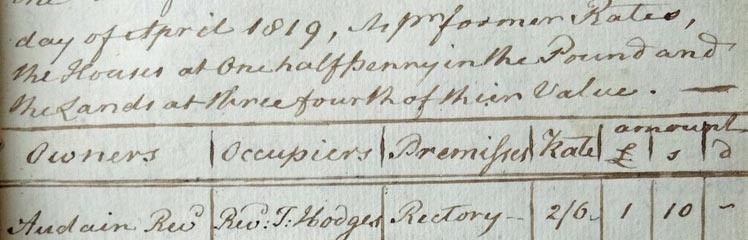 day of April 1819, As pr former Rates,
the Houses at One halfpenny in the Pound and
the Lands at three fourth of their Value. —
Owners Occupiers Premisses Rate amount £ s d
Audain Revd Revd: T: Hodges Rectory - 2/6 1 10 -